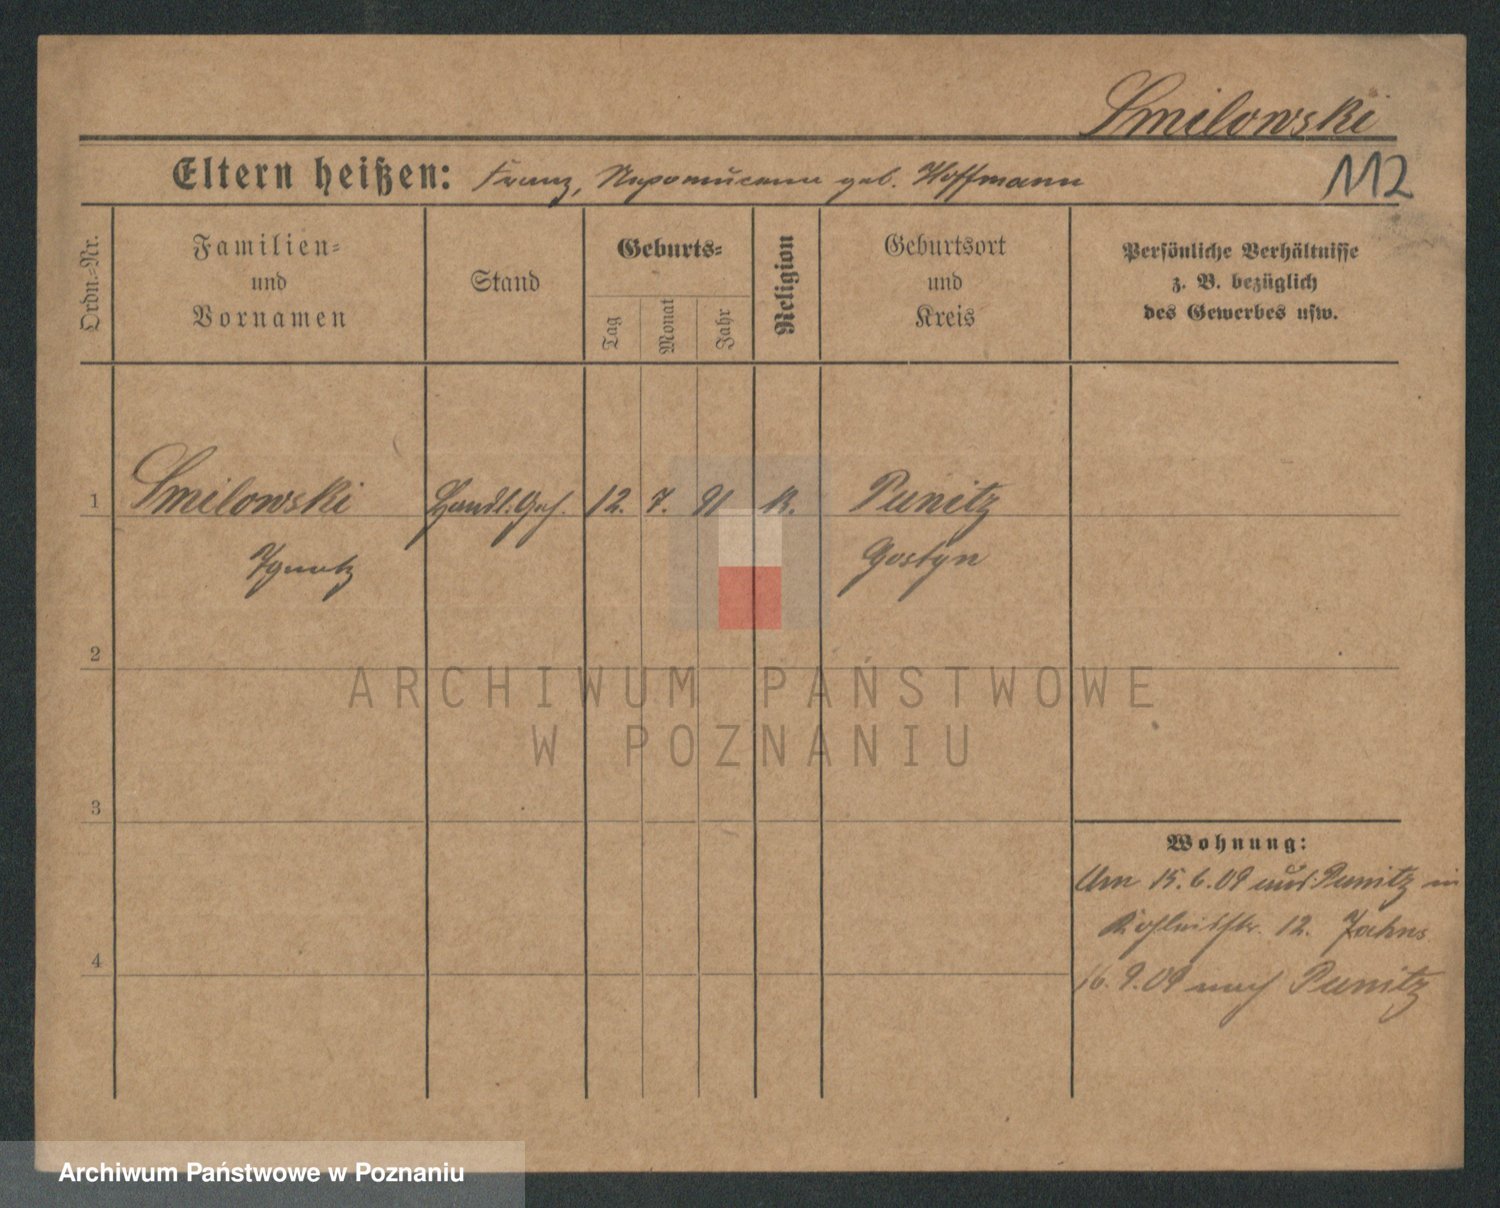 Smilowski
Eltern heißen: Franz, Nepomucena geb. Hoffmann
112
Ordn.=Nr.
Familien=
und
Vornamen
Stand
Geburts=
Tag
Monat
Jahr
Religion
Geburtsort
und
Kreis
Persönliche Verhältnisse
z. B. bezüglich
des Gewerbes usw.
1 Smilowski Handl. Geh. 12. 7. 91 K. Punitz
Ignatz Gostyn
2
ARCHIWUM PAŃSTWOWE
W POZNANIU
3
Wohnung:
Am 15.6.09 aus Punitz in
12.
4
16.9.09 nach Punitz
Archiwum Państwowe w Poznaniu